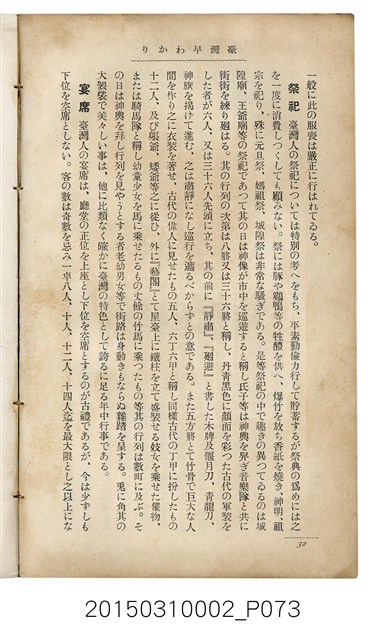 臺灣早わかり
一般に此の服喪は嚴正に行はれてゐる。
祭祀 臺灣人の祭祀については特別の考へをもち、平素勤儉力行して貯蓄するが祭典の爲めには之
を一度に消費しつくしても顧みない。祭には豚や鷄鴨等の牲醴を供へ、爆竹を放ち香紙を燒き、神明、祖
宗を祀り、殊に元旦祭、媽祖祭、城隍祭は非常な騷ぎである。是等祭祀の中で趣きの異つてゐるのは城
隍廟、王爺廟等の祭祀であつて其の日は神像が市中を巡遊すると稱し氏子等は神輿を舁ぎ音樂隊と共に
街街を練り廻はる。其の行列の次第は八將又は三十六將と稱し、丹青黑色に顏面を彩つた古代の軍裝を
した者が六人、又は三十六人先頭に立ち、其の前に『靜肅』、『廻避』と書した木牌及偃月刀、青龍刀、
神旗を揭げて進む、之は肅靜になし巡行を遮るべからずとの意である。また五方將とて竹骨で巨大な人
間を作り之に衣裝を著せ、古代の偉人に見せたもの五人、六丁六甲と稱し同樣古代の丁甲に扮したもの
十二人、及び張爺、矮爺等之に從ひ、外に『藝閣』とて屋臺上に鐵柱を立て盛裝せる妓女を乘せた催物、
または騎馬隊と稱し幼童少女を馬に乘せたるもの丈餘の竹馬に乘つたもの等其の行列は數町に及ぶ。そ
の日は神輿を拜し行列を見やうとする者老幼男女等で街路は身動きもならぬ雜踏を呈する。兎に角其の
大袈裟で美々しい事は、他に比類なく確かに臺灣の特色として誇るに足る年中行事である。
宴席 臺灣人の宴席は、廳堂の正位を上座とし下位を空席とするのが古禮であるが、今は少ずしも
下位を空席としない。客の數は奇數を忌み一卓八人、十人、十二人、十四人迄を最大限とし之以上にな
32
20150310002_P073